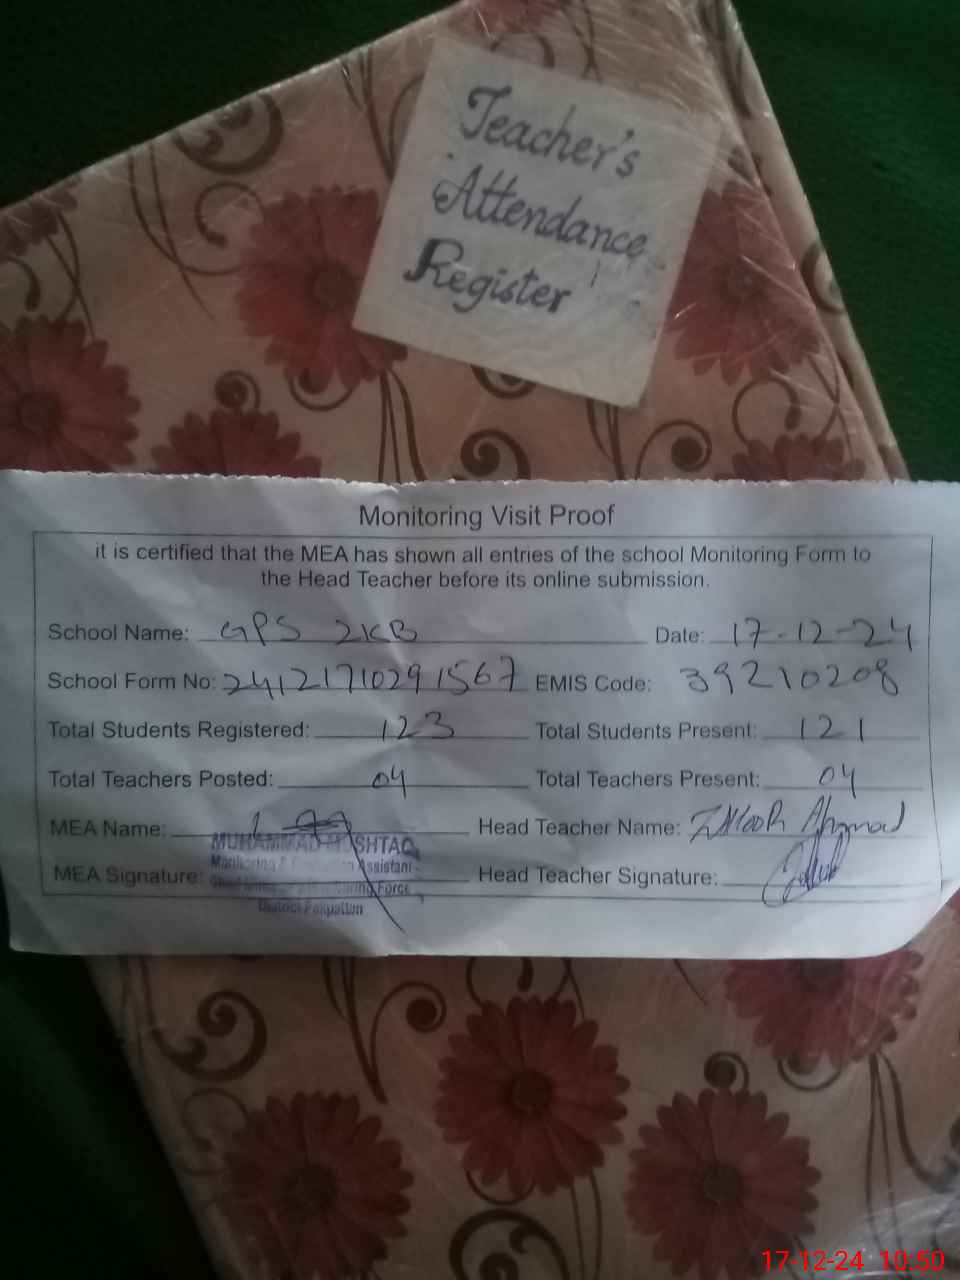 Teacher's
Attendance
Register
Monitoring Visit Proof
it is certified that the MEA has shown all entries of the school Monitoring Form to
the Head Teacher before its online submission.
School Name: GPS 2KB Date: 17-12-24
School Form No: 24121710291567 EMIS Code: 39210208
Total Students Registered: 123 Total Students Present: 121
Total Teachers Posted: 04 Total Teachers Present: 04
MEA Name: Head Teacher Name: Zahoor Ahmad
MUHAMMAD MUSHTAQ
Monitoring & Evaluation Assistant
MEA Signature: Head Teacher Signature:
Monitoring Force
District Pakpattan
17-12-24 10:50